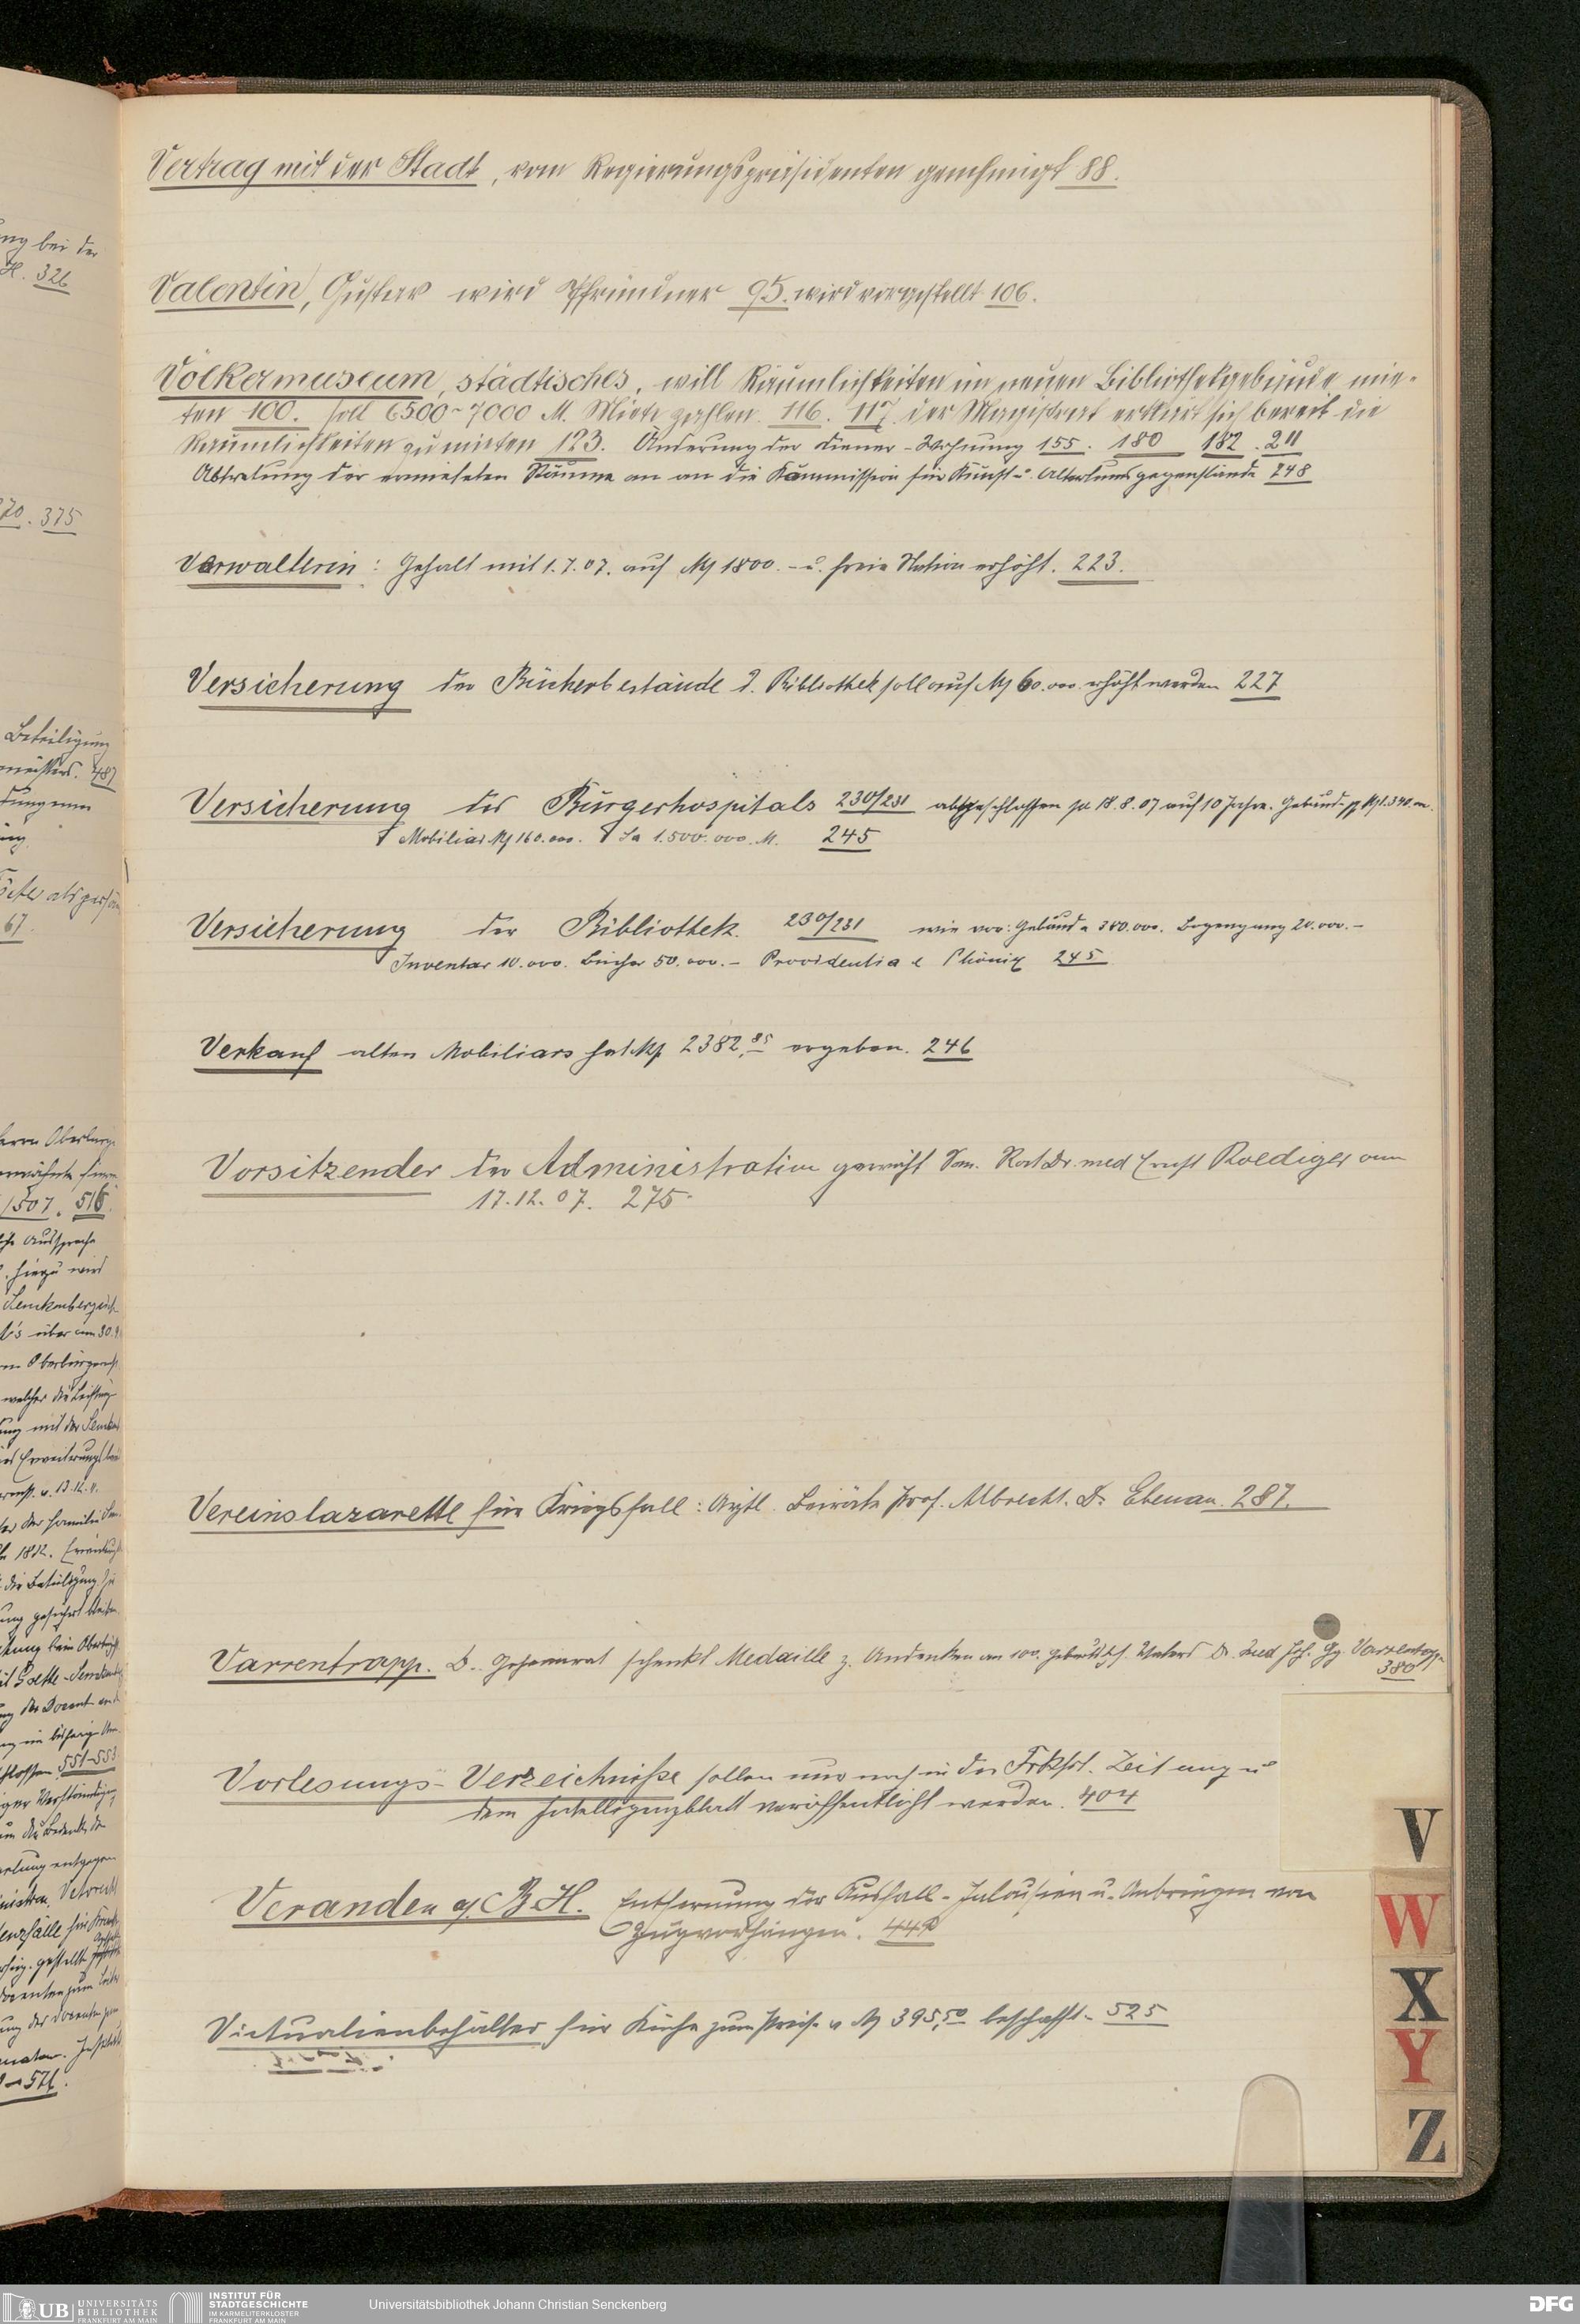 Vertrag mit der Stadt, vom Regierungspräsidenten genehmigt 88.
Valentin, Gustav wird Pfründner 95. wird vorgestellt 106.
Völkermuseum, städtisches, will Räumlichkeiten im neuen Bibliothekgebäude mie-
ten 100. soll 6500-7000 M. Miete zahlen. 116. 117. der Magistrat erklärt sich bereit die
Räumlichkeiten zu mieten 123. Änderung der Diener-Wohnung 155. 180 182. 211
Abtretung der vermieteten Räume an an die Kommission für Kunst- u. Altertumsgegenstände 248
Verwalterin: Gehalt mit 1.7.07. auf M 1800.- u. freie Station erhöht. 223.
Versicherung der Bücherbestände d. Bibliothek soll auf M 60.000 erhöht werden 227
Versicherung des Bürgerhospitals 230/231 abgeschlossen 18.8.07 auf 10 Jahre. Gebäude M 1.340.m.
Mobiliar M 160.000. Sa 1.500.000. M. 245
Versicherung der Bibliothek. 230/231 wie vor: Gebäude 380.000. Bogengang 20.000.-
Inventar 10.000. Bücher 50.000.- Providentia & Phönix 245
Verkauf alten Mobiliars hat M 2382,85 ergeben. 246
Vorsitzender der Administration gewählt San. Rat Dr. med Ernst Roediger am
17.12.07. 275.
Vereinslazarette für Kriegsfall: Ärztl. Beiräte Prof. Albrecht. Dr. Ebenau. 287.
Varrentrapp. Dr. Geheimrat schenkt Medaille z. Andenken an 100. Geburtstg. s. Vaters Dr. med Joh. Gg. Varrentrapp
380
Vorlesungs-Verzeichnisse sollen nur noch in der Frkfrt. Zeitung u
dem Intelligenzblatt veröffentlicht werden. 404
Veranden a/. B.H. Entfernung der Ausfall-Jalousien u. Anbringen von
Zugvorhängen.
Victualienbehälter für Küche zum Preise v M 395,50 beschafft. 525
ng bei der
H. 326
70. 375
Beteiligung
487
67.
1507. 516
551-553
V
W
X
Y
Z
UB UNIVERSITÄTS
BIBLIOTHEK
FRANKFURT AM MAIN
INSTITUT FÜR
STADTGESCHICHTE
IM KARMELITERKLOSTER
FRANKFURT AM MAIN
Universitätsbibliothek Johann Christian Senckenberg
DFG